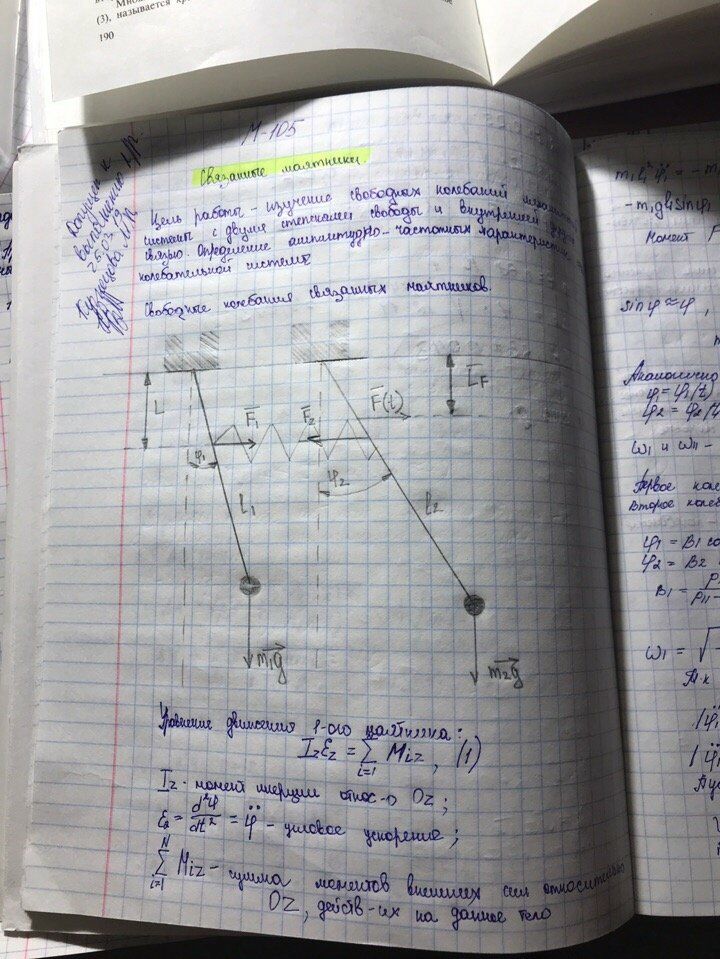 (3), называется
190
М-105
Связанные маятники.
Допущен к
выполнению л/р.
25.03.19
Цель работы - изучение свободных колебаний
системы с двумя степенями свободы и внутренней
связью. Определение амплитудно-частотных характеристик
колебательной системы
Свободные колебания связанных маятников.
L
F₁
F₂
F(t)
L_F
φ₁
φ₂
l₁
l₂
m₁g
m₂g
Уравнение движения 1-ого маятника:
I_z ε_z = ∑ M_iz, (1)
i=1
I_z - момент инерции относ-о OZ;
ε_z = d²φ/dt² = φ̈ - угловое ускорение;
N
∑ M_iz - сумма моментов внешних сил относительно
i=1
OZ, действ-их на данное тело
m₁l₁²φ̈₁ = -
-m₁gl₁sinφ₁
момент F
sinφ≈φ,
Аналогично
φ₁=φ₁(t)
φ₂=φ₂(t)
ω_I и ω_II -
Первое
Второе
φ₁ = B₁
φ₂ = B₂
B₁ =
ω₁ = √
Т.к